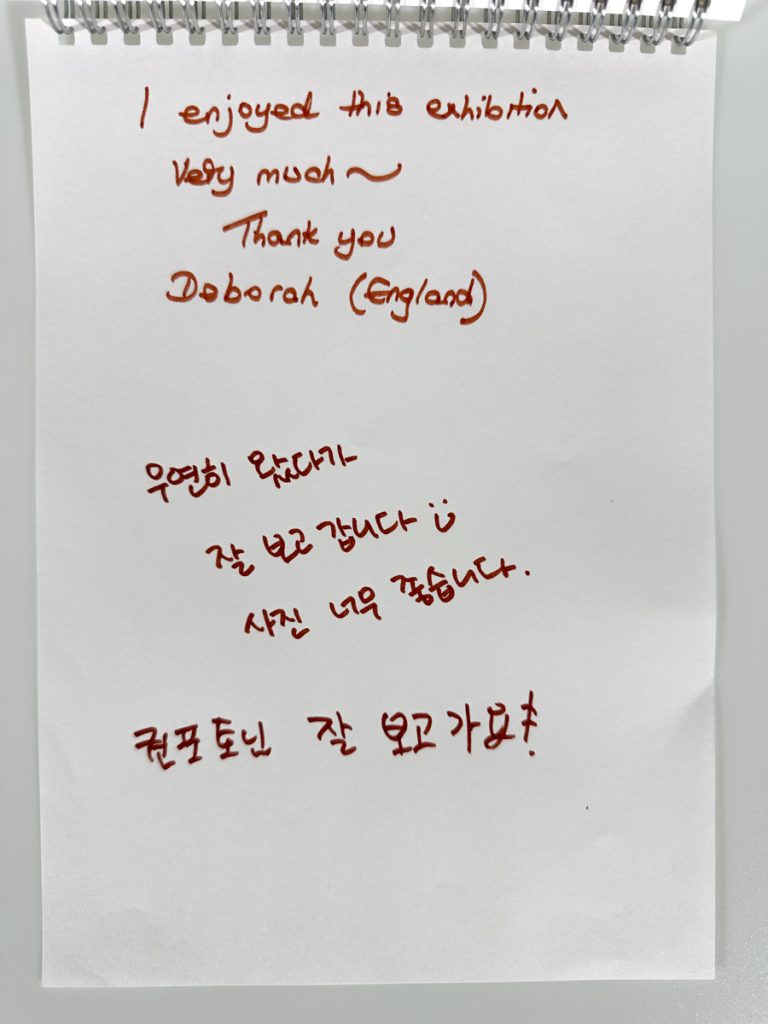 I enjoyed this exhibition
Very much~
Thank you
Deborah (England)
우연히 왔다가
잘 보고 갑니다 :)
사진 너무 좋습니다.
권포토닌 잘 보고가요!